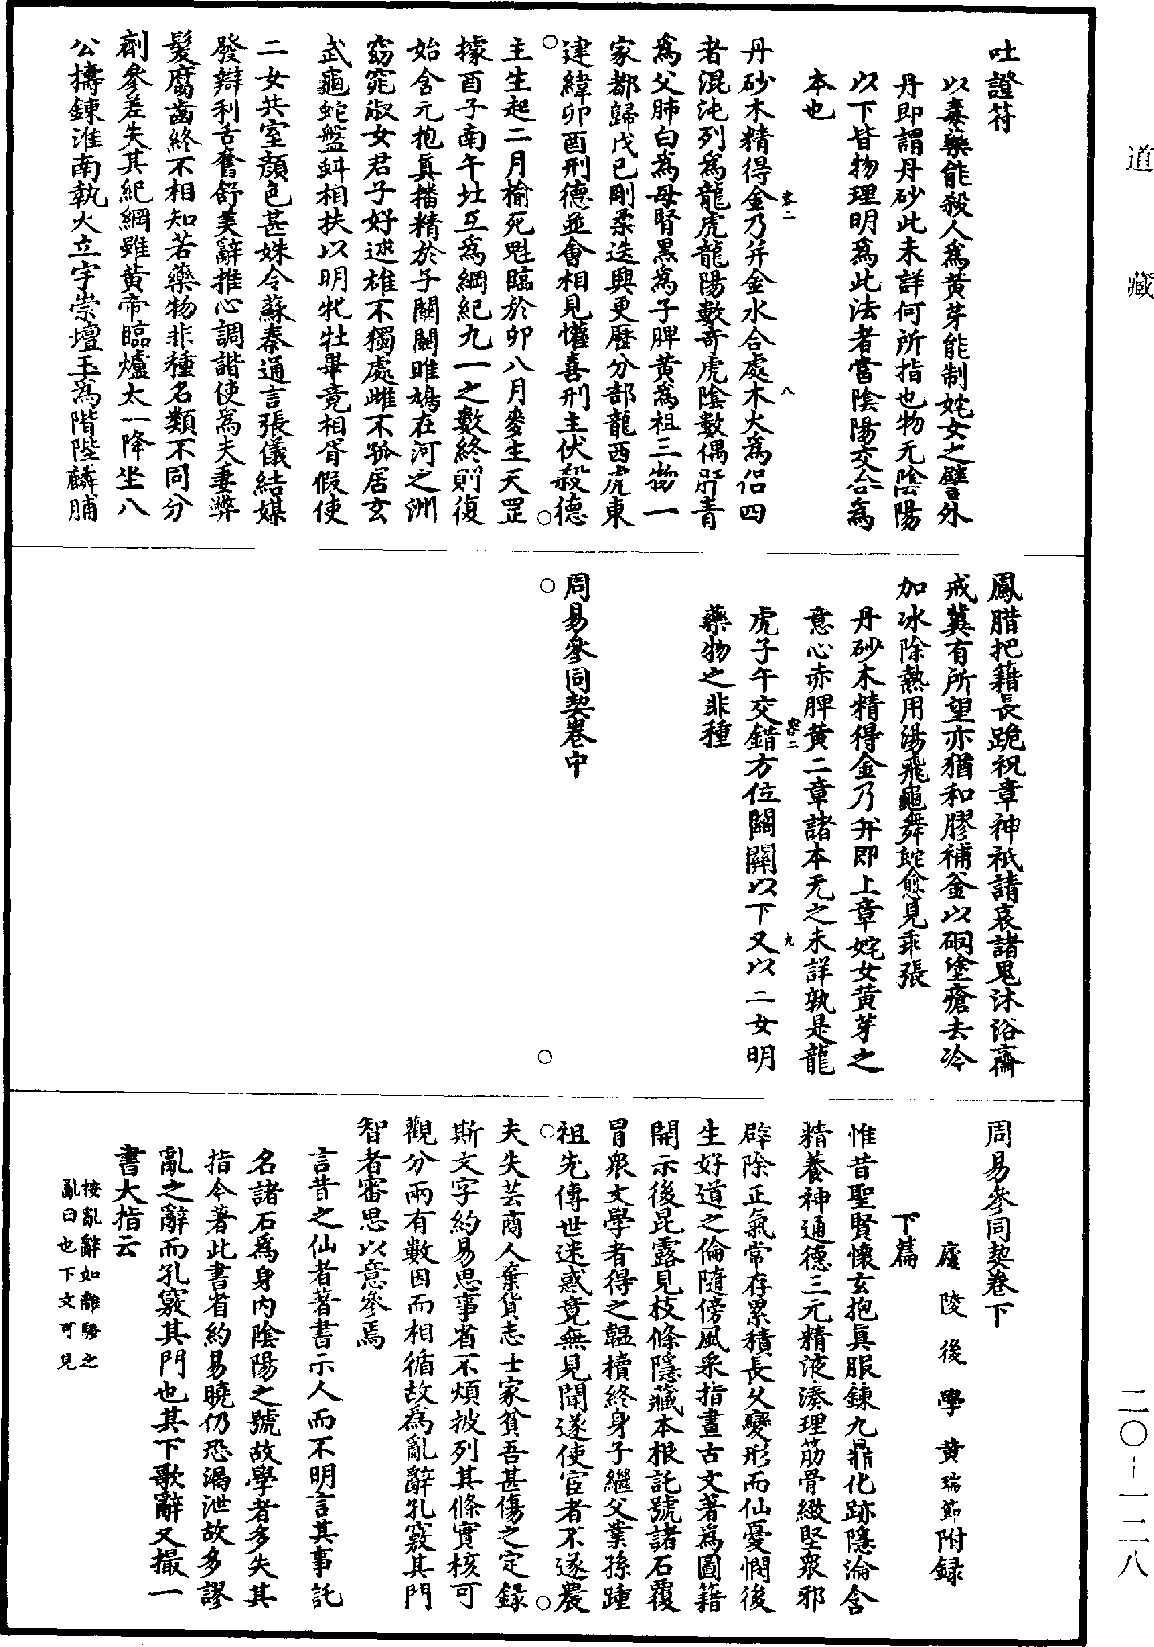 道藏
吐證符
以毒藥能殺人爲黃芽能制姹女之譬外
丹即謂丹砂此未詳何所指也物无陰陽
以下皆物理明爲此法者當陰陽交合爲
本也
丹砂木精得金乃并金水合處木火爲侶四
者混沌列爲龍虎龍陽數奇虎陰數偶肝青
爲父肺白爲母腎黑爲子脾黃爲祖三物一
家都歸戊己剛柔迭興更歷分部龍西虎東
建緯卯酉刑德並會相見懽喜刑主伏殺德
主生起二月榆死魁臨於卯八月麥生天罡
據酉子南午北互爲綱紀九一之數終則復
始含元抱真播精於子關關雎鳩在河之洲
窈窕淑女君子好逑雄不獨處雌不孤居玄
武龜蛇盤蚪相扶以明牝牡畢竟相胥假使
二女共室顏色甚姝令蘇秦通言張儀結媒
發辯利舌奮舒美辭推心調諧使爲夫妻弊
髮腐齒終不相知若藥物非種名類不同分
劑參差失其紀綱雖黃帝臨爐太一降坐八
公擣鍊淮南執火立宇崇壇玉爲階陛麟脯
鳳腊把籍長跪祝章神祇請哀諸鬼沐浴齋
戒冀有所望亦猶和膠補釜以硇塗瘡去冷
加冰除熱用湯飛龜舞蛇愈見乖張
丹砂木精得金乃并即上章姹女黃芽之
意心赤脾黃二章諸本无之未詳孰是龍
虎子午交錯方位關關以下又以二女明
藥物之非種
周易參同契卷中
周易參同契卷下
廬陵後學黃瑞節附録
下篇
惟昔聖賢懷玄抱眞服鍊九鼎化跡隱淪含
精養神通德三元精液湊理筋骨緻堅衆邪
辟除正氣常存累積長久變形而仙憂憫後
生好道之倫隨傍風采指畫古文著爲圖籍
開示後昆露見枝條隱藏本根託號諸石覆
冒衆文學者得之韞櫝終身子繼父業孫踵
祖先傳世迷惑竟無見聞遂使宦者不遂農
夫失芸商人棄貨志士家貧吾甚傷之定録
斯文字約易思事省不煩披列其條實核可
觀分兩有數因而相循故爲亂辭孔竅其門
智者審思以意參焉
言昔之仙者著書示人而不明言其事託
名諸石爲身内陰陽之號故學者多失其
指今著此書省約易曉仍恐漏泄故多謬
亂之辭而孔竅其門也其下歌辭又撮一
書大指云
按亂辭如離騷之
亂曰也下文可見
二〇-一二八